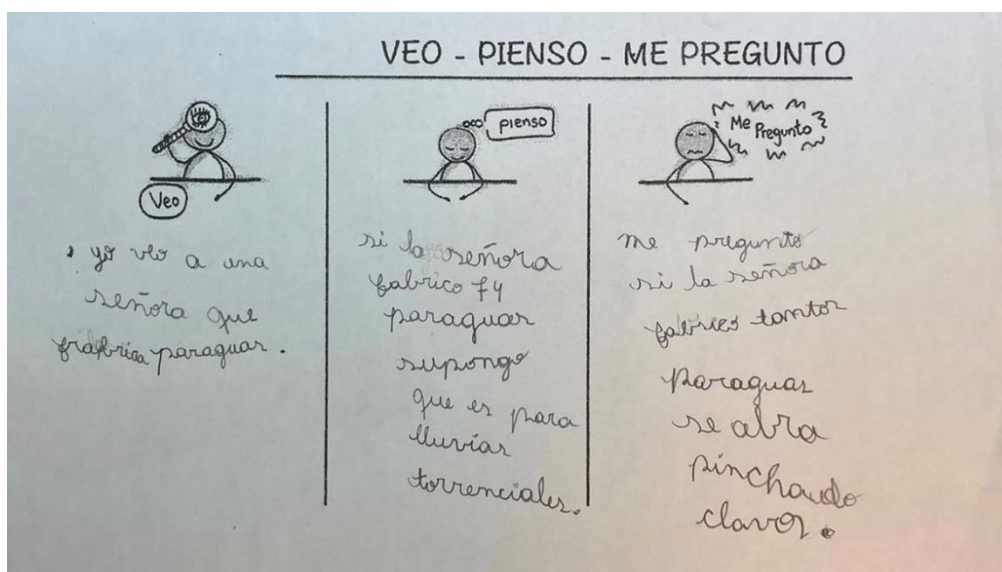 VEO - PIENSO - ME PREGUNTO
Veo
, yo veo a una
señora que
frabrica paraguas.
pienso
si la señora
fabrico 74
paraguas
supongo
que es para
lluvias
torrenciales.
Me
Pregunto
me pregunto
si la señora
fabrico tantos
paraguas
se abra
pinchando
clavos.